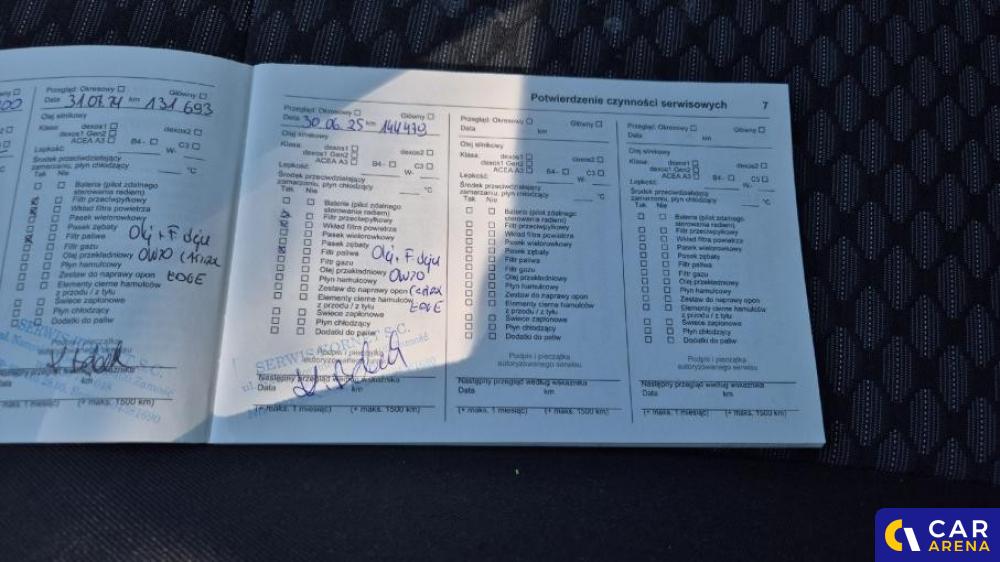 Potwierdzenie czynności serwisowych 7
Główny
Przegląd: Okresowy Główny
Data 31.07.24 km 131 693
Olej silnikowy
Klasa: dexos1 dexos2
dexos1 Gen2
ACEA A3 B4- C3
Lepkość: W-
Środek przeciwdziałający
zamarzaniu, płyn chłodzący °C
Tak Nie
Bateria (pilot zdalnego
sterowania radiem)
Filtr przeciwpyłkowy
Wkład filtra powietrza
Pasek wielorowkowy
Pasek zębaty
Filtr paliwa
Filtr gazu
Olej przekładniowy
Płyn hamulcowy
Zestaw do naprawy opon
Elementy cierne hamulców
z przodu / z tyłu
Świece zapłonowe
Płyn chłodzący
Dodatki do paliw
0W20
EDGE
Podpis i pieczątka
km
(+ maks. 1 miesiąc) (+ maks. 1500 km)
Przegląd: Okresowy Główny
Data 30.06.25 km 144479
Olej silnikowy
Klasa: dexos1 dexos2
dexos1 Gen2
ACEA A3 B4- C3
Lepkość: W-
Środek przeciwdziałający
zamarzaniu, płyn chłodzący °C
Tak Nie
Bateria (pilot zdalnego
sterowania radiem)
Filtr przeciwpyłkowy
Wkład filtra powietrza
Pasek wielorowkowy
Pasek zębaty
Filtr paliwa
Filtr gazu
Olej przekładniowy
Płyn hamulcowy
Zestaw do naprawy opon
Elementy cierne hamulców
z przodu / z tyłu
Świece zapłonowe
Płyn chłodzący
Dodatki do paliw
0W20
EDGE
Podpis i pieczątka
autoryzowanego
Następny przegląd według wskaźnika
Data km
(+ maks. 1 miesiąc) (+ maks. 1500 km)
Przegląd: Okresowy Główny
Data km
Olej silnikowy
Klasa: dexos1 dexos2
dexos1 Gen2
ACEA A3 B4- C3
Lepkość: W-
Środek przeciwdziałający
zamarzaniu, płyn chłodzący °C
Tak Nie
Bateria (pilot zdalnego
sterowania radiem)
Filtr przeciwpyłkowy
Wkład filtra powietrza
Pasek wielorowkowy
Pasek zębaty
Filtr paliwa
Filtr gazu
Olej przekładniowy
Płyn hamulcowy
Zestaw do naprawy opon
Elementy cierne hamulców
z przodu / z tyłu
Świece zapłonowe
Płyn chłodzący
Dodatki do paliw
Podpis i pieczątka
autoryzowanego serwisu
Następny przegląd według wskaźnika
Data km
(+ maks. 1 miesiąc) (+ maks. 1500 km)
Przegląd: Okresowy Główny
Data km
Olej silnikowy
Klasa: dexos1 dexos2
dexos1 Gen2
ACEA A3 B4- C3
Lepkość: W-
Środek przeciwdziałający
zamarzaniu, płyn chłodzący °C
Tak Nie
Bateria (pilot zdalnego
sterowania radiem)
Filtr przeciwpyłkowy
Wkład filtra powietrza
Pasek wielorowkowy
Pasek zębaty
Filtr paliwa
Filtr gazu
Olej przekładniowy
Płyn hamulcowy
Zestaw do naprawy opon
Elementy cierne hamulców
z przodu / z tyłu
Świece zapłonowe
Płyn chłodzący
Dodatki do paliw
Podpis i pieczątka
autoryzowanego serwisu
Następny przegląd według wskaźnika
Data km
(+ maks. 1 miesiąc) (+ maks. 1500 km)
CAR
ARENA